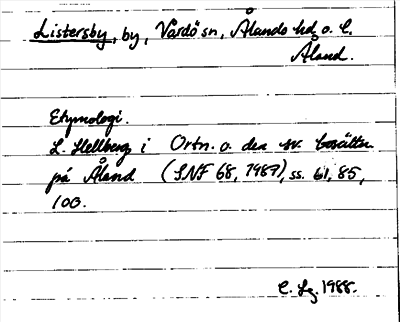 Listersby, by, Vårdö sn, Ålands hd o. l.
Åland.
Etymologi.
L. Hellberg i Ortn. o. den sv. bosättn.
på Åland (SNF 68, 1987), ss. 61, 85,
100.
1988.